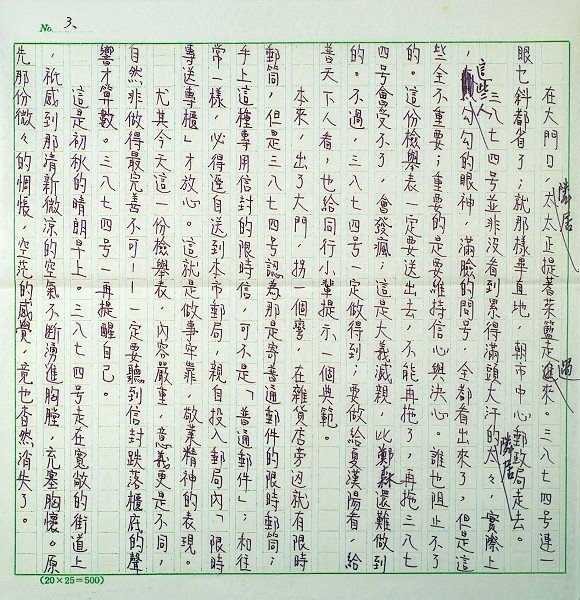 No. 3、
在大門口，隣居太太正提著菜籃走過來。三八七四号連一
眼乜斜都省了；就那樣畢直地，朝市中心郵政局走去。
三八七四号並非沒看到累得滿頭大汗的隣居太々，實際上
，這些人勾勾的眼神，滿臉的問号，全都看出來了，但是這
些全不重要；重要的是要維持信心與決心。誰也阻止不了
的。這份檢舉表一定要送出去，不能再拖了，再拖三八七
四号會受不了，會發瘋；這是大義滅親，比還難做到
的。不過，三八七四号一定做得到；要做給夏漢陽看，給
普天下人看，也給同行小輩提示一個典範。
本來，出了大門，拐一個彎，在雜貨店旁邊就有限時
郵筒，但是三八七四号認為那是寄普通郵件的限時郵筒；
手上這種專用信封的限時信，可不是「普通郵件」；和往
常一樣，必得逕自送到本市郵局，親自投入郵局內「限時
專送專櫃」才放心。這就是做事牢靠，敬業精神的表現。
尤其今天這一份檢舉表，內容嚴重，意義更是不同，
自然非做得最完善不可——一定要聽到信封跌落櫃底的聲
響才算數。三八七四号一再提醒自己。
這是初秋的晴朗早上。三八七四号走在寬敞的街道上
，祇感到那清新微涼的空氣不斷湧進胸膛，充塞胸懷。原
先那份微々的惆悵，空茫的感覺，竟也杳然消失了。
(20×25=500)